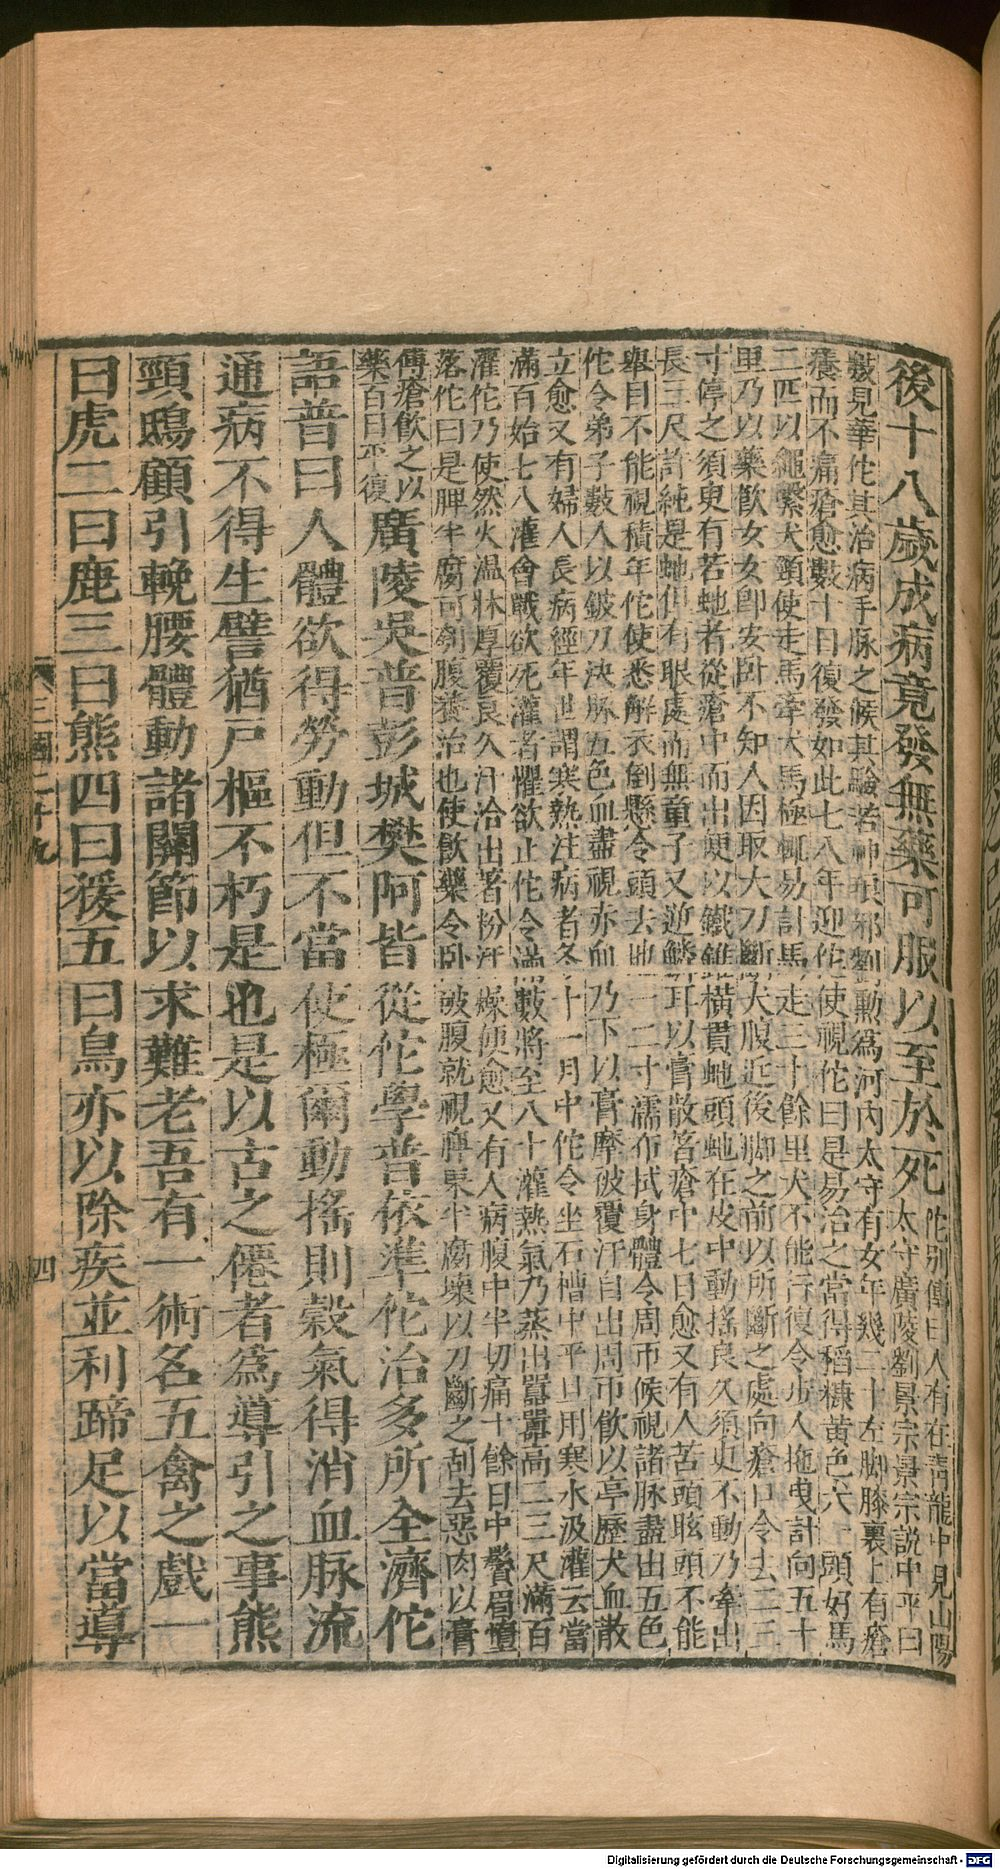 後十八歲成病竟發無藥可服以至於死佗別傳曰人有在青龍中見山陽
太守廣陵劉景宗景宗說中平日
數見華佗其治病手脉之候其驗若神琅邪劉勳爲河內太守有女年幾二十左脚膝裏上有瘡
癢而不痛瘡愈數十日復發如此七八年迎佗使視佗曰是易治之當得稻糠黃色犬一頭好馬
二匹以繩繫犬頸使走馬牽犬馬極輒易計馬走三十餘里犬不能行復令步人拖曳計向五十
里乃以藥飲女女即安卧不知人因取大刀斷犬腹近後脚之前以所斷之處向瘡口令去二三
寸停之須臾有若虵者從瘡中而出便以鐵錐橫貫虵頭虵在皮中動搖良久須臾不動乃牽出
長三尺許純是虵但有眼處而無童子又逆鱗耳以膏散著瘡中七日愈又有人苦頭眩頭不能
舉目不能視積年佗使悉解衣倒懸令頭去地一二寸濡布拭身體令周帀候視諸脉盡出五色
佗令弟子數人以鈹刀決脉五色血盡視赤血乃下以膏摩被覆汗自出周帀飲以亭歷犬血散
立愈又有婦人長病經年世謂寒熱注病者冬十一月中佗令坐石槽中平旦用寒水汲灌云當
滿百始七八灌會戰欲死灌者懼欲止佗令滿數將至八十灌熱氣乃蒸出嚻嚻高二三尺滿百
灌佗乃使然火溫牀厚覆良久汗洽出著粉汗燥便愈又有人病腹中半切痛十餘日中鬢眉墮
落佗曰是脾半腐可刳腹養治也使飲藥令卧破腹就視脾果半腐壞以刀斷之刮去惡肉以膏
傅瘡飲之以
藥百日平復
廣陵吳普彭城樊阿皆從佗學普依準佗治多所全濟佗
語普曰人體欲得勞動但不當使極爾動搖則穀氣得消血脉流
通病不得生譬猶戶樞不朽是也是以古之僊者爲導引之事熊
頸鴟顧引輓腰體動諸關節以求難老吾有一術名五禽之戲一
曰虎二曰鹿三曰熊四曰猨五曰鳥亦以除疾並利蹄足以當導
三國二十九
四
Digitalisierung gefördert durch die Deutsche Forschungsgemeinschaft - DFG